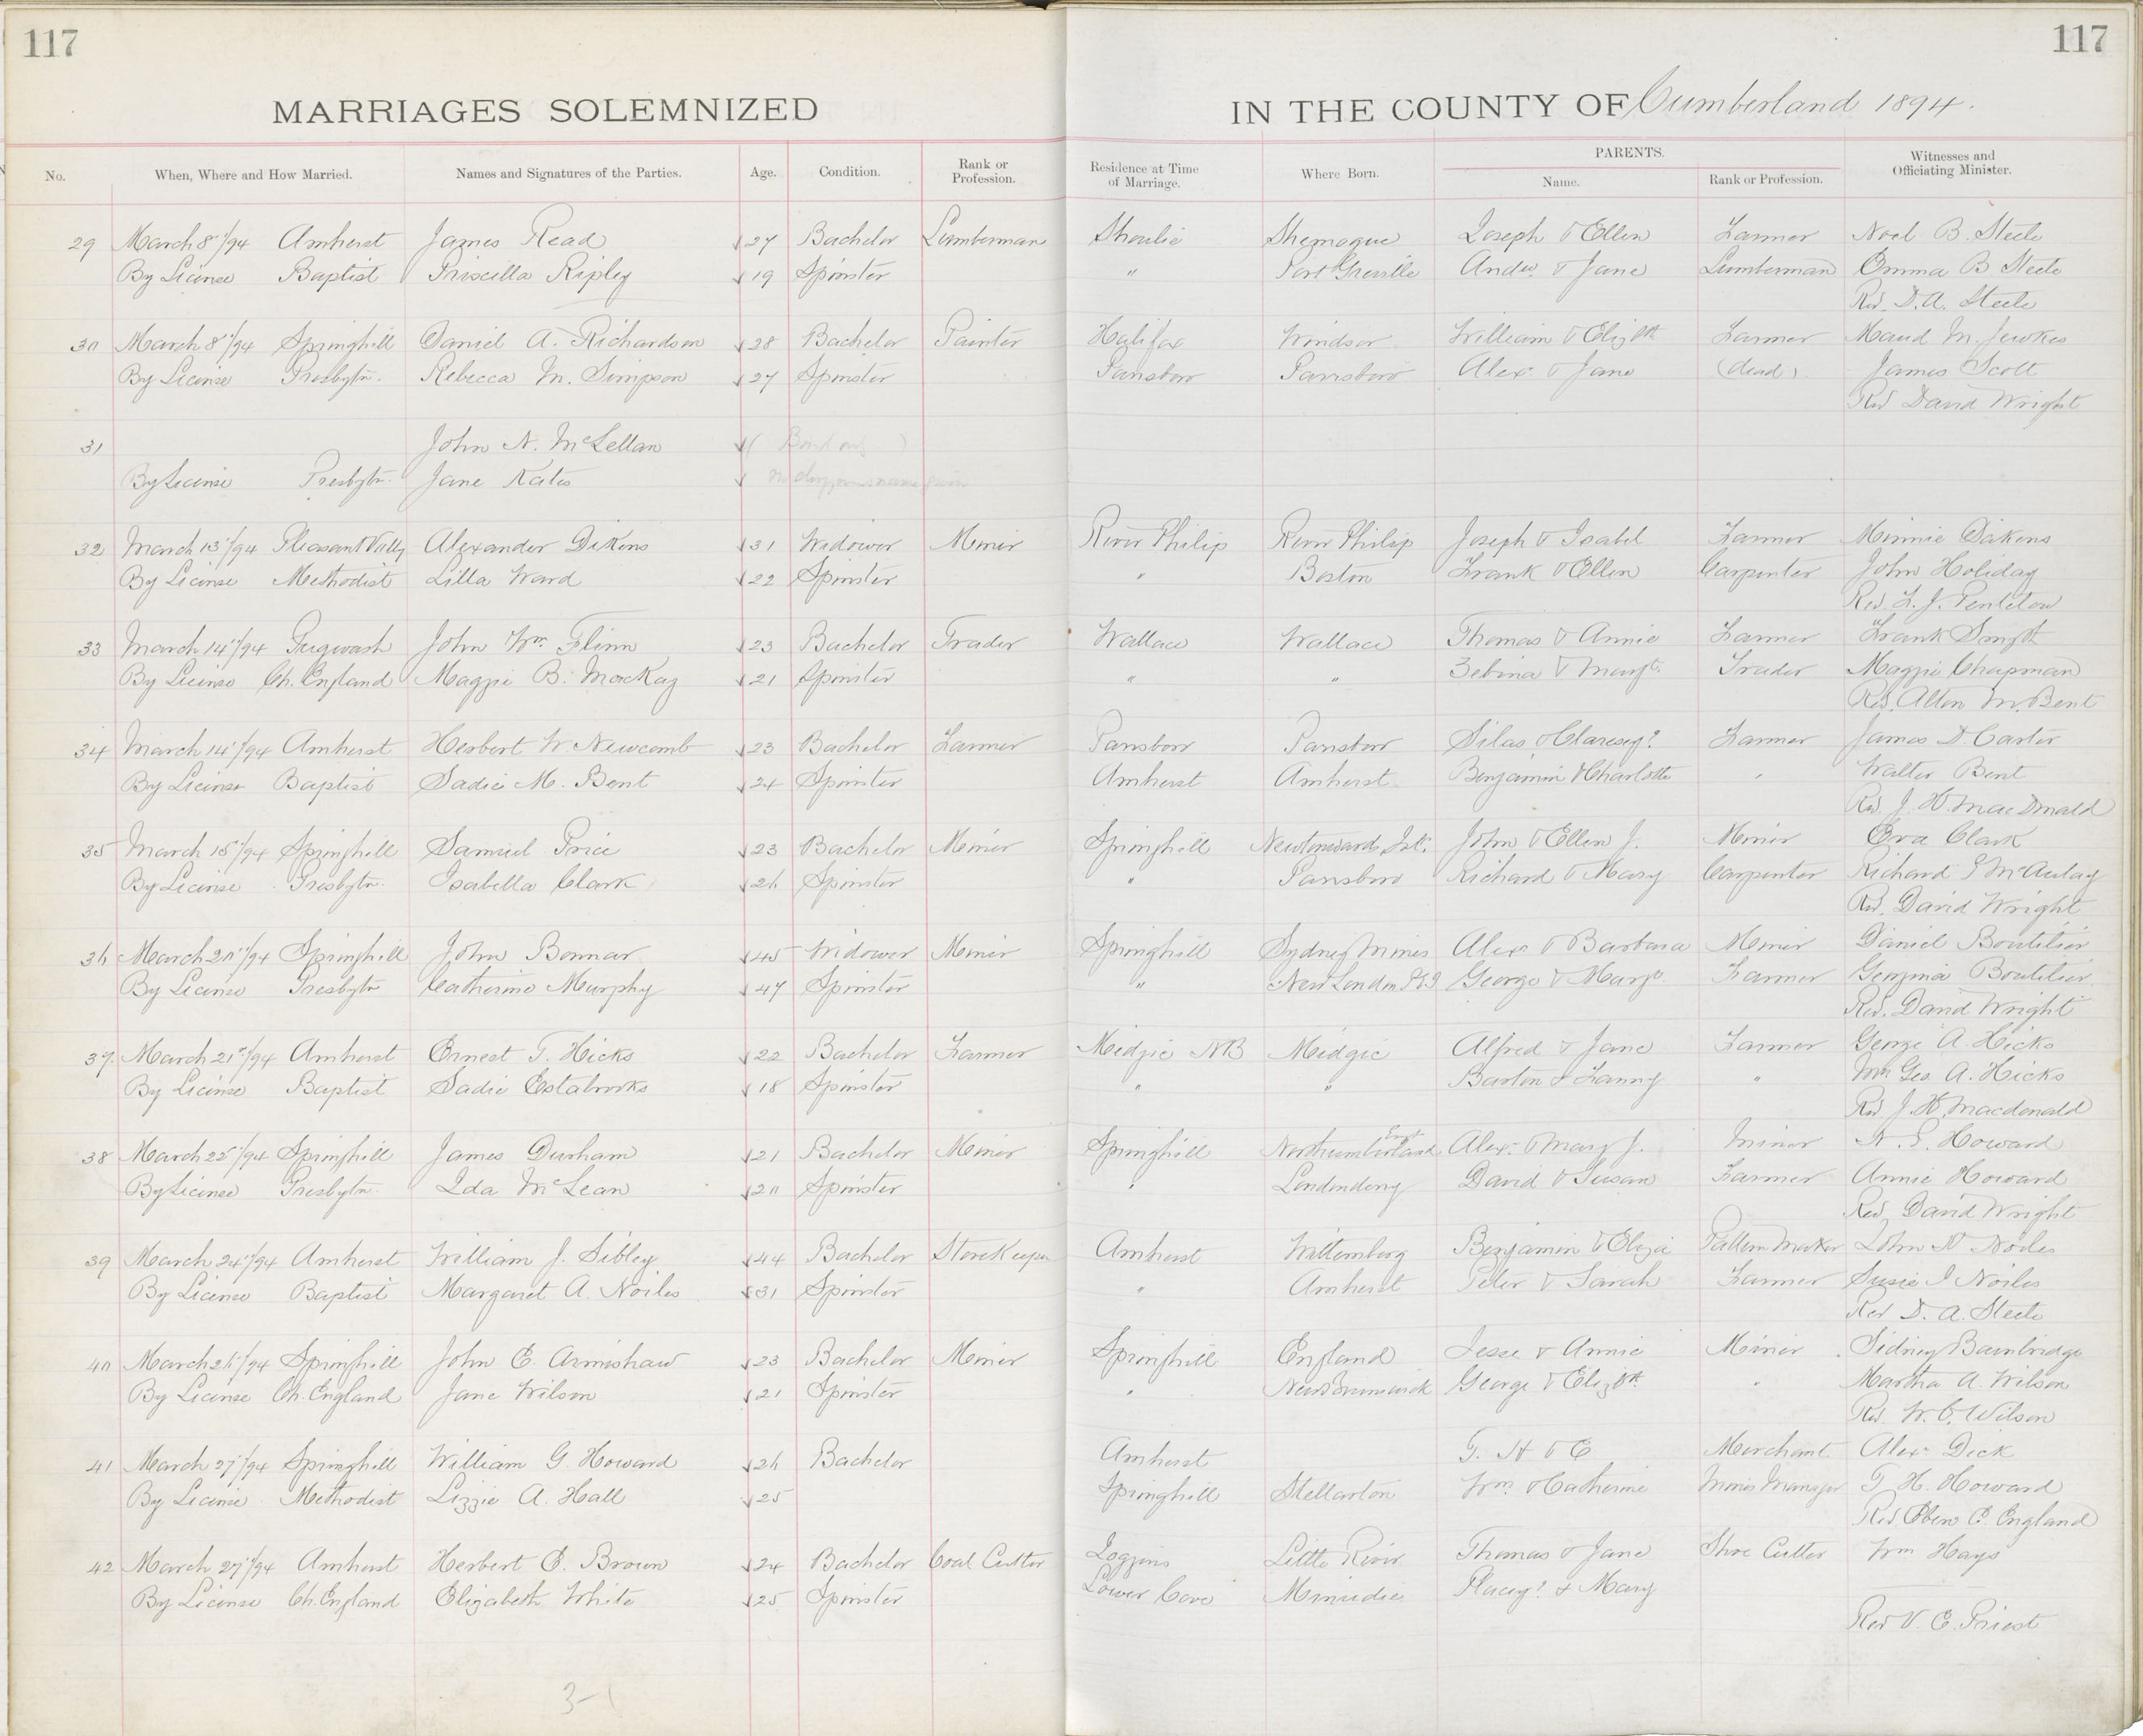 117
117
MARRIAGES SOLEMNIZED
IN THE COUNTY OF Cumberland 1894.
No. When, Where and How Married. Names and Signatures of the Parties. Age. Condition. Rank or Profession. Residence at Time of Marriage. Where Born. PARENTS. Name. Rank or Profession. Witnesses and Officiating Minister.
29 March 8"/94 Amherst James Read 27 Bachelor Lumberman Shoulie Shemogue Joseph & Ellen Farmer Noel B. Steele
By License Baptist Priscilla Ripley 19 Spinster " Port Greville Andw & Jane Lumberman Emma B Steele
Rev. D. A. Steele
30 March 8"/94 Springhill Daniel A. Richardson 28 Bachelor Painter Halifax Windsor William & Elizbth Farmer Maud M. Jewkes
By License Presbytn. Rebecca M. Simpson 27 Spinster Parrsboro Parrsboro Alex. & Jane (dead) James Scott
Rev David Wright
31 John N. McLellan
By License Presbytn. Jane Kates
32 March 13"/94 Pleasant Vally Alexander Dikens 31 Widower Miner River Philip River Philip Joseph & Isabel Farmer Minnie Dikens
By License Methodist Lilla Ward 22 Spinster " Boston Frank & Ellen Carpenter John Holiday
Rev. L. J.
33 March 14"/94 Pugwash John Wm. Flinn 23 Bachelor Trader Wallace Wallace Thomas & Annie Farmer Frank Smyth
By License Ch. England Maggie B. MacKay 21 Spinster " " Zebina & Margt. Trader Maggie Chapman
Rev. Alton M. Bent
34 March 14"/94 Amherst Herbert W. Newcomb 23 Bachelor Farmer Parrsboro Parrsboro Silas & Claresey? Farmer James D. Carter
By License Baptist Sadie M. Bent 24 Spinster Amherst Amherst Benjamin & Charlotte " Walter Bent
Rev J. H. MacDonald
35 March 15"/94 Springhill Samuel Price 23 Bachelor Miner Springhill Newtonwards Irl. John & Ellen J. Miner Eva Clark
By License Presbytn. Isabella Clark 26 Spinster " Parrsboro Richard & Mary Carpenter Richard McAulay
Rev. David Wright
36 March 20"/94 Springhill John Bonnar 45 Widower Miner Springhill Sydney Mines Alex. & Barbara Miner Daniel Boutilier
By License Presbytn Catherine Murphy 47 Spinster " New London PEI George & Margt. Farmer Gemmia Boutilier
Rev. David Wright
37 March 21st/94 Amherst Ernest T. Hicks 22 Bachelor Farmer Midgic NB Midgic Alfred & Jane Farmer George A. Hicks
By License Baptist Sadie Estabrooks 18 Spinster " " Barton & Fanny " Mrs Geo. A. Hicks
Rev J. H. Macdonald
38 March 22"/94 Springhill James Durham 21 Bachelor Miner Springhill Northumberland Eng Alex. & Mary J. Miner N. S. Howard
By License Presbytn. Ida McLean 20 Spinster " Londonderry David & Susan Farmer Annie Howard
Rev. David Wright
39 March 24"/94 Amherst William J. Sibley 44 Bachelor StoreKeeper Amherst Wittemberg Benjamin & Eliza Pattern Maker John N Noiles
By License Baptist Margaret A. Noiles 31 Spinster " Amherst Peter & Sarah Farmer Susie J Noiles
Rev D. A. Steele
40 March 26"/94 Springhill John E. Armishaw 23 Bachelor Miner Springhill England Jesse & Annie Miner Sidney Bambridge
By License Ch. England Jane Wilson 21 Spinster " New Brunswick George & Elizbth " Martha A. Wilson
Rev. W. C. Wilson
41 March 27"/94 Springhill William G. Howard 26 Bachelor Amherst T. H & E Merchant Alex. Dick
By License Methodist Lizzie A. Hall 25 Springhill Stellarton Wm. & Catherine Mines Manager T. H. Howard
Rev. Eben E. England
42 March 27"/94 Amherst Herbert E. Brown 24 Bachelor Coal Cutter Joggins Little River Thomas & Jane Shoe Cutter Wm Hays
By License Ch. England Elizabeth White 25 Spinster Lower Cove Minudie Placey? & Mary
Rev V. E. Priest
3-1